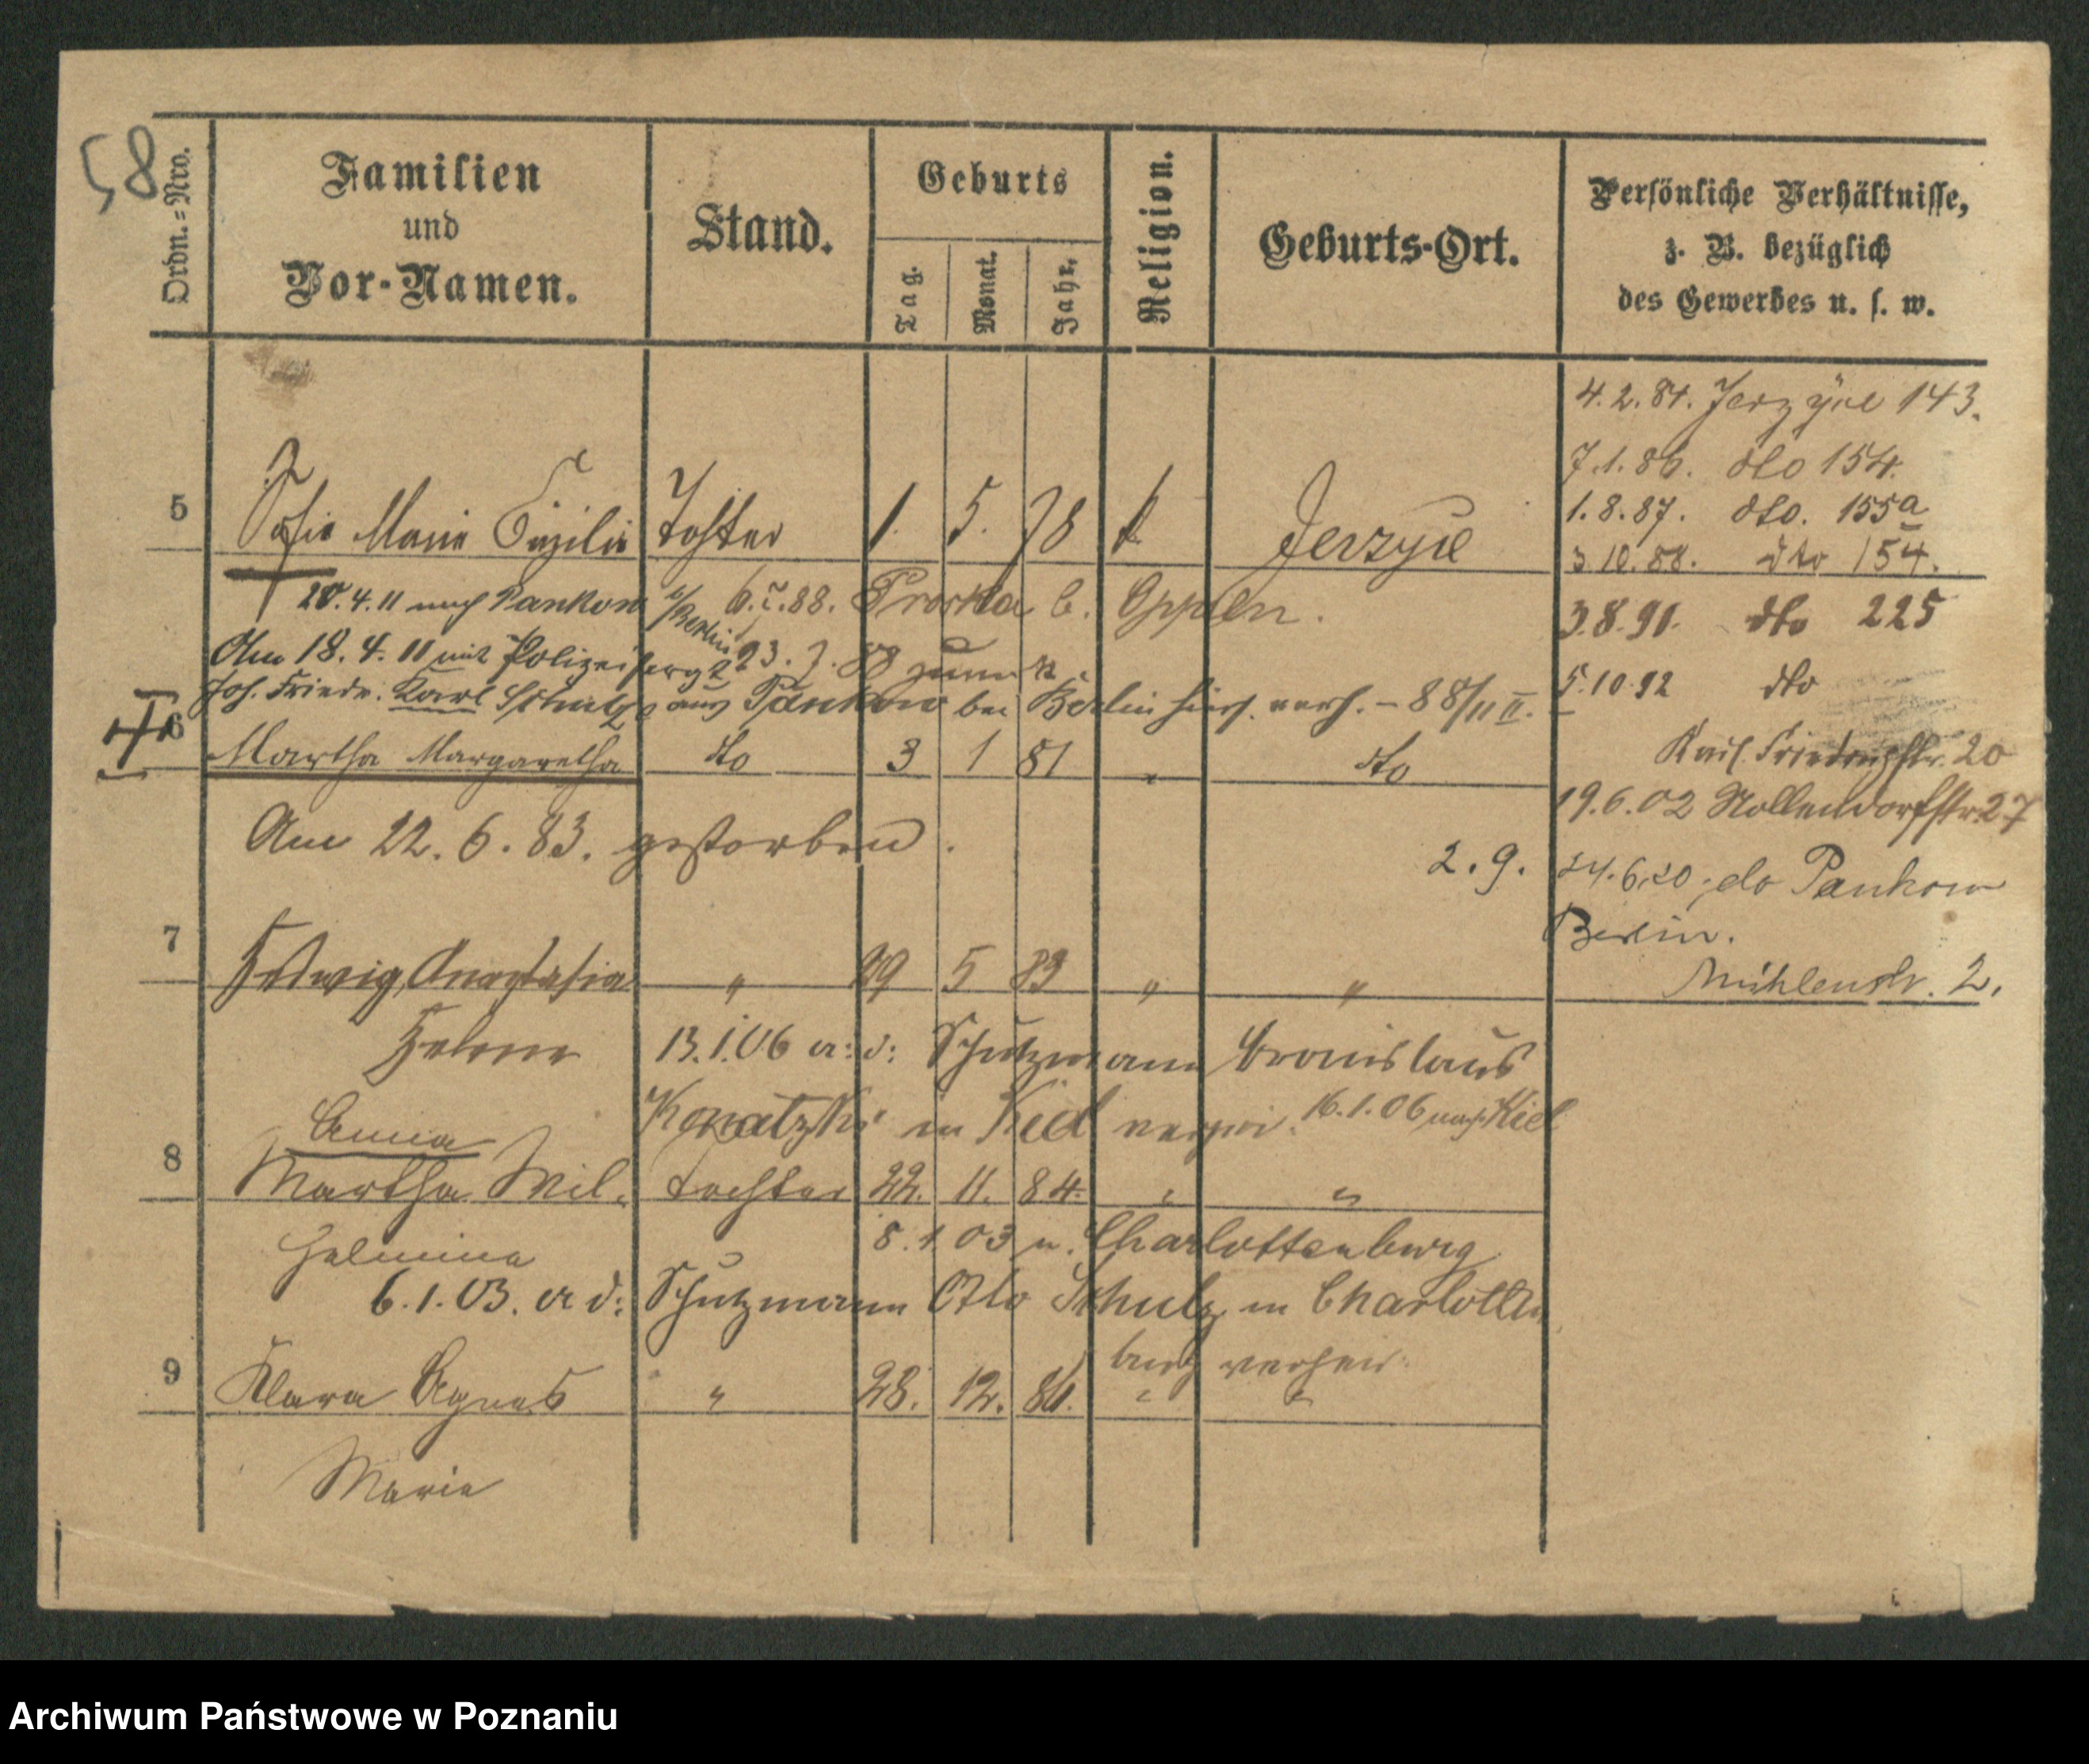 58
Ordn.=Nro.
Familien
und
Vor-Namen.
Stand.
Geburts
Tag.
Monat.
Jahr.
Religion.
Geburts-Ort.
Persönliche Verhältnisse,
z. B. bezüglich
des Gewerbes u. s. w.
4.2.81. Jerzyce 143.
7.1.86. dto 154.
1.8.87. dto. 155a
3.10.88. dto 154.
3.8.91. dto 225
5.10.92 dto
Karl Friedrichstr. 20
19.6.02 Nollendorfstr. 27
2.9. 24.6.20 do Pankow
Berlin.
Mühlenstr. 2.
5 Sofie Marie Cäzilie Tochter 1. 5. 78 k Jerzyce
20.4.11 nach Pankow b/Berlin 6.7.88. b. Oppeln.
23.7.88 zurück
Am 18.4.11 mit Polizei
Joh. Friedr. Karl Schulz aus Pankow bei Berlin hier verh. - 88/11 II.
6 Martha Margaretha dto 3 1 81 " dto
Am 22.6.83. gestorben.
7 Hedwig Anastasia " 29 5 83 " "
Helene
13.1.06 a: d: Schutzmann Bronislaus
in Kiel verh. 16.1.06 nach Kiel
8 Anna
Martha Wil- Tochter 22. 11. 84. " "
helmine
8.1.03 n. Charlottenburg
6.1.03. a d: Schutzmann Otto Schulz in Charlotten
burg verheir.
9 Klara Agnes " 28. 12. 86. " "
Marie
Archiwum Państwowe w Poznaniu